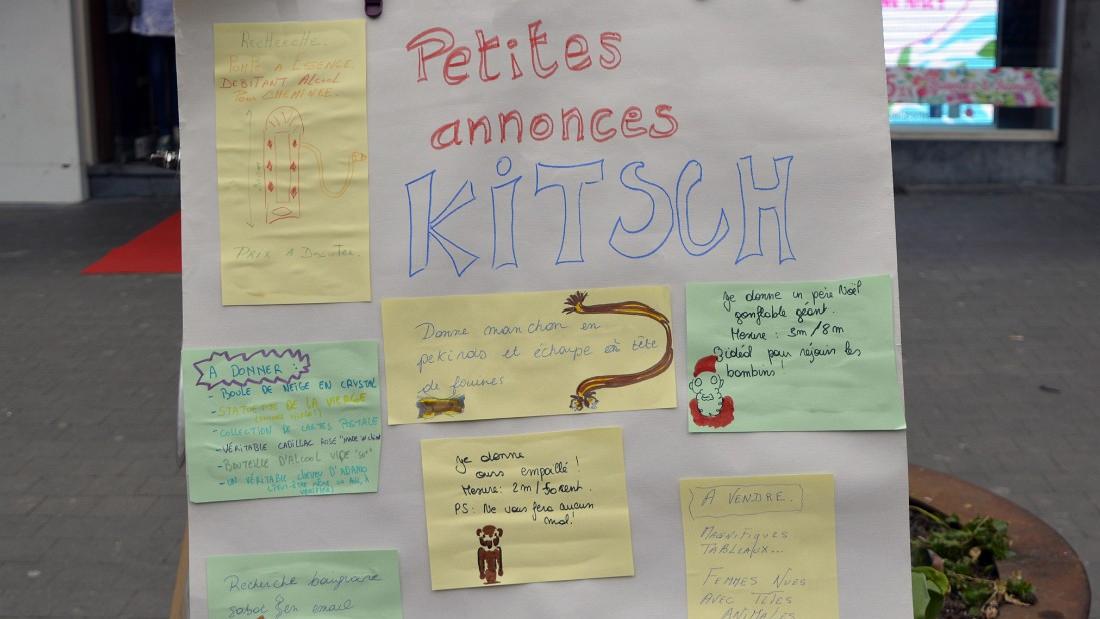 Petites
annonces
KITSCH
Recherche.
Pompe a Essence
Débitant Alcool
Pour Cheminée.
Prix a Discuter.
Donne manchon en
pekinois et écharpe en tête
de fouines
Je donne un père Noël
gonflable géant.
Mesure : 3m/8m
idéal pour réjouir les
bambins !
A DONNER :
- BOULE DE NEIGE EN CRYSTAL
- STATUETTE DE LA VIERGE
- COLLECTION DE CARTES POSTALE
- VÉRITABLE CADILLAC ROSE "MADE IN CHINA
- BOUTEILLE D'ALCOOL VIDE
- UN VÉRITABLE CHEVEU D'ADAMO
(PEUT-ÊTRE MÊME UN AIL, À
VÉRIFIER)
Je donne
ours empaillé !
Mesure : 2m/
PS: Ne vous fera aucun
mal!
A VENDRE.
MAGNIFIQUES
TABLEAUX...
FEMMES NUES
AVEC TÊTES
ANIMALES
Recherche baignoire
sabot en émail